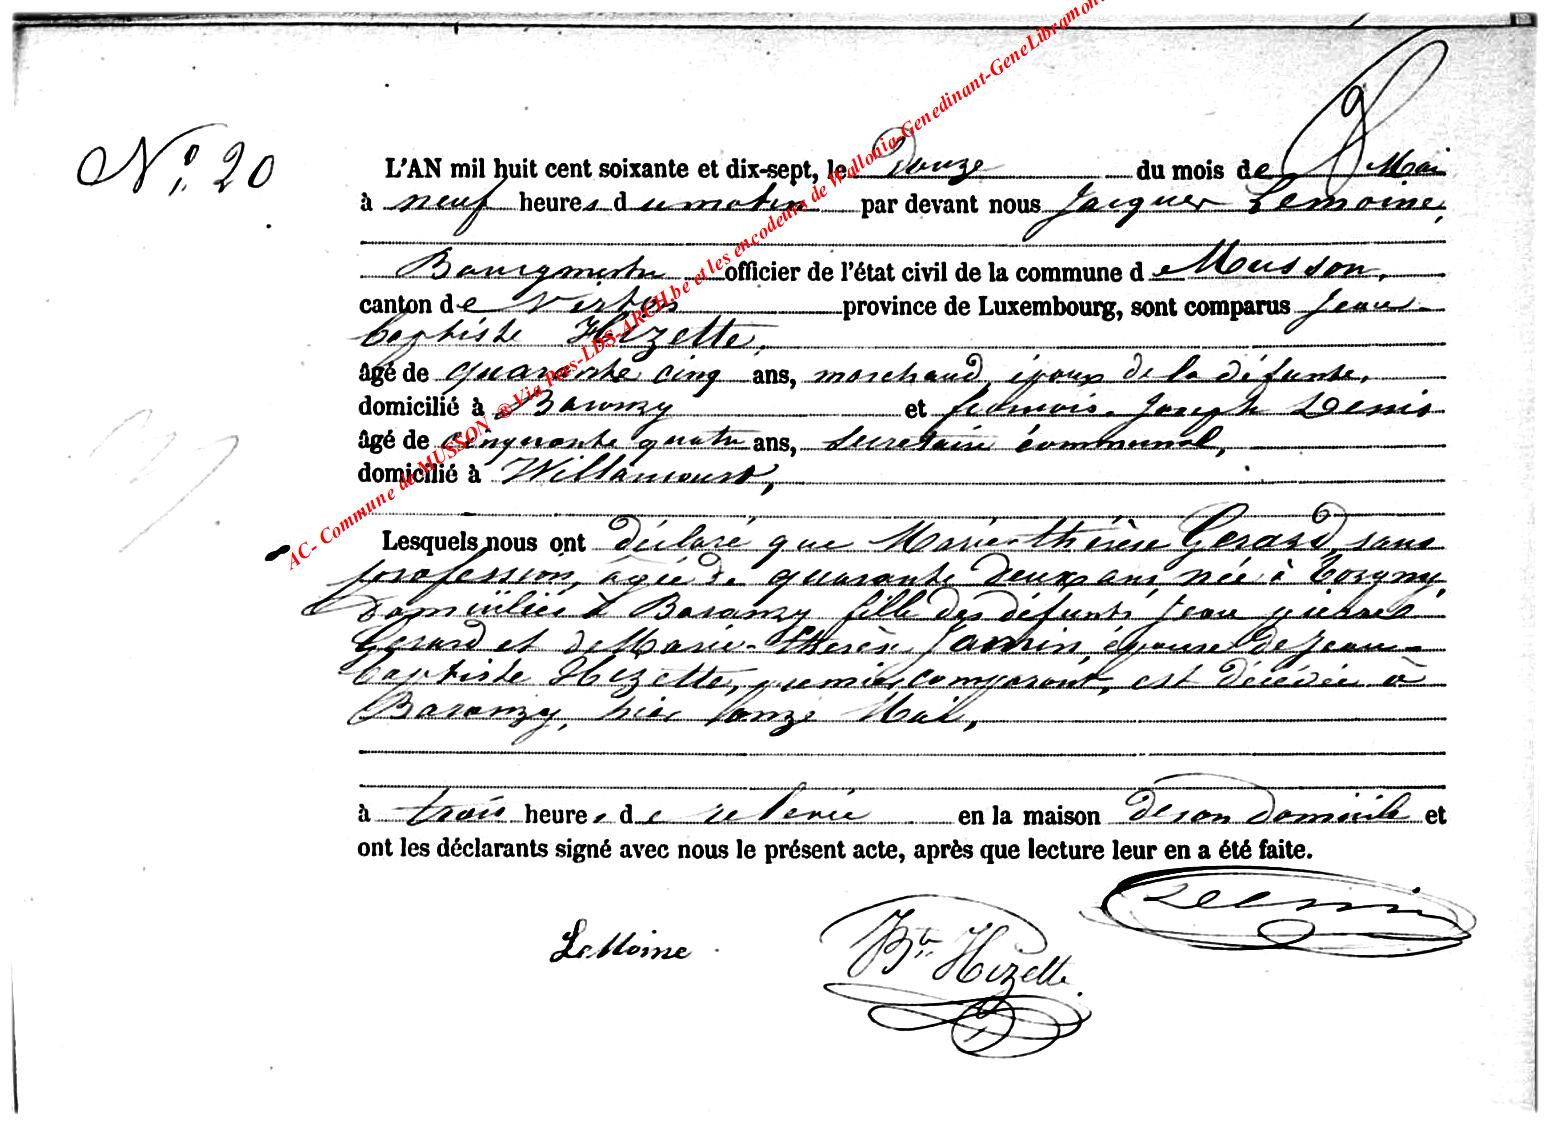 N° 20
L'AN mil huit cent soixante et dix-sept, le Douze du mois de Mai
à neuf heures du matin par devant nous Jacques Lemoine,
Bourgmestre officier de l'état civil de la commune de Musson,
canton de Virton province de Luxembourg, sont comparus Jean-
baptiste Hizette,
âgé de quarante cinq ans, marchand, époux de la défunte,
domicilié à Baranzy et francois-Joseph Denis
âgé de cinquante quatre ans, secretaire communal,
domicilié à Willancourt,
Lesquels nous ont déclaré que Marie-thérèse Gerard, sans
profession, agée de quarante deux ans, née à Torgny,
domiciliée à Baranzy fille des défunts Jean pierre
Gerard et de Marie-thérèse Jamin épouse de Jean-
baptiste Hizette, premier comparant, est décédée à
Baranzy, hier onze Mai,
à trois heures de relevée en la maison de son domicile et
ont les déclarants signé avec nous le présent acte, après que lecture leur en a été faite.
LeMoine
Bte Hizette
Denis
AC- Commune de MUSSON @Via Pros-LDS-ARCH.be et les encodeurs de Wallonia-Genedinant-GeneLibramont